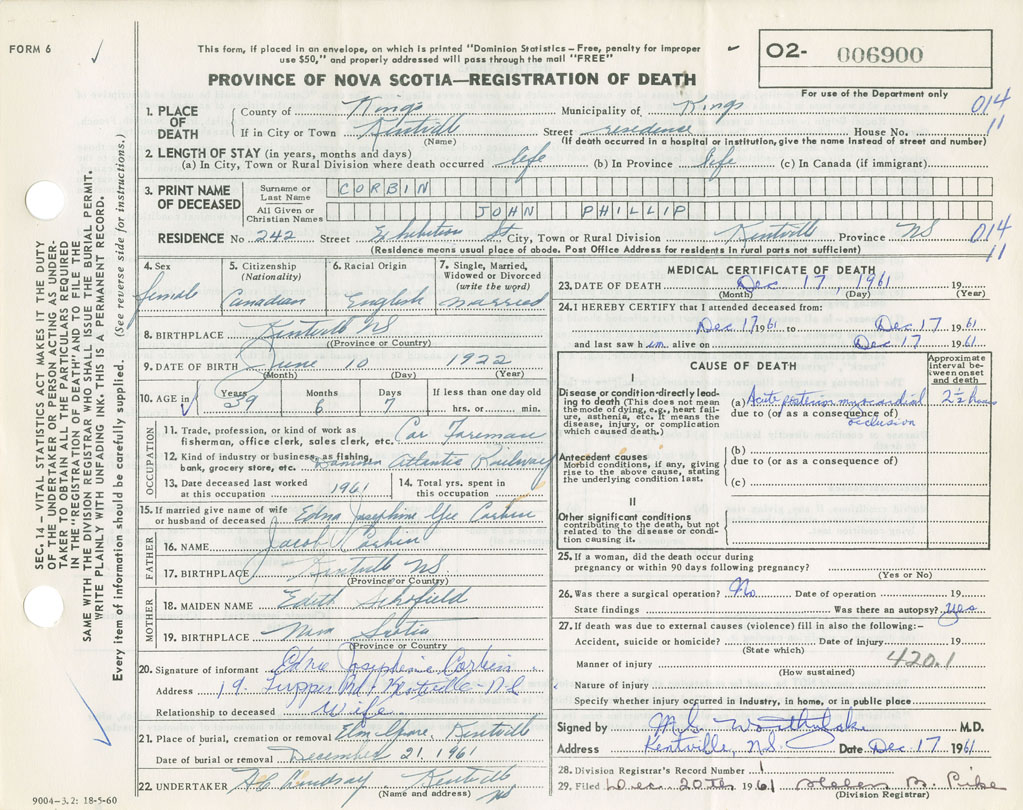 FORM 6
This form, if placed in an envelope, on which is printed "Dominion Statistics – Free, penalty for improper
use $50," and properly addressed will pass through the mail "FREE"
O2- 006900
PROVINCE OF NOVA SCOTIA—REGISTRATION OF DEATH
For use of the Department only
1. PLACE OF DEATH
County of Kings Municipality of Kings 014
If in City or Town Kentville Street residence House No. 11
(Name) (If death occurred in a hospital or institution, give the name instead of street and number)
2. LENGTH OF STAY (in years, months and days)
(a) In City, Town or Rural Division where death occurred life (b) In Province life (c) In Canada (if immigrant)
3. PRINT NAME OF DECEASED
Surname or Last Name CORBIN
All Given or Christian Names JOHN PHILLIP
RESIDENCE No. 242 Street Exhibition St City, Town or Rural Division Kentville Province NS 014
(Residence means usual place of abode. Post Office Address for residents in rural parts not sufficient) 11
4. Sex female
5. Citizenship (Nationality) Canadian
6. Racial Origin English
7. Single, Married, Widowed or Divorced (write the word) married
8. BIRTHPLACE Kentville NS
(Province or Country)
9. DATE OF BIRTH June 10 1922
(Month) (Day) (Year)
10. AGE in Years 39 Months 6 Days 7 If less than one day old hrs. or min.
OCCUPATION
11. Trade, profession, or kind of work as fisherman, office clerk, sales clerk, etc. Car Foreman
12. Kind of industry or business, as fishing, bank, grocery store, etc. Dominion Atlantic Railway
13. Date deceased last worked at this occupation 1961
14. Total yrs. spent in this occupation
15. If married give name of wife or husband of deceased Edna Josephine Corbin
FATHER
16. NAME Jacob Corbin
17. BIRTHPLACE Kentville NS.
(Province or Country)
MOTHER
18. MAIDEN NAME Edith Schofield
19. BIRTHPLACE Nova Scotia
(Province or Country)
20. Signature of informant Josephine Corbin
Address 19 Tupper Rd Kentville N.S
Relationship to deceased Wife
21. Place of burial, cremation or removal Elm Grove, Kentville
Date of burial or removal December 21, 1961
22. UNDERTAKER Lindsay Kentville NS
(Name and address)
9004–3.2: 18-5-60
MEDICAL CERTIFICATE OF DEATH
23. DATE OF DEATH Dec 17, 1961 19
(Month) (Day) (Year)
24. I HEREBY CERTIFY that I attended deceased from:
Dec 17 1961 to Dec 17 1961
and last saw him alive on Dec 17 1961
CAUSE OF DEATH
Approximate interval between onset and death
I
Disease or condition directly leading to death (This does not mean the mode of dying, e.g., heart failure, asthenia, etc. It means the disease, injury, or complication which caused death.)
(a) Acute posterior myocardial 2½ hours
due to (or as a consequence of)
occlusion
Antecedent causes
Morbid conditions, if any, giving rise to the above cause, stating the underlying condition last.
(b)
due to (or as a consequence of)
(c)
II
Other significant conditions
contributing to the death, but not related to the disease or condition causing it.
25. If a woman, did the death occur during
pregnancy or within 90 days following pregnancy?
(Yes or No)
26. Was there a surgical operation? No Date of operation 19
State findings Was there an autopsy? yes
27. If death was due to external causes (violence) fill in also the following:-
Accident, suicide or homicide? Date of injury 19
(State which) 420.1
Manner of injury
(How sustained)
Nature of injury
Specify whether injury occurred in Industry, in home, or in public place
Signed by M.D.
Address Kentville, N.S. Date Dec 17 1961
28. Division Registrar's Record Number 1
29. Filed Dec. 20th 1961 Helen B. Pike
(Division Registrar)
SEC. 14 – VITAL STATISTICS ACT MAKES IT THE DUTY
OF THE UNDERTAKER OR PERSON ACTING AS UNDER-
TAKER TO OBTAIN ALL THE PARTICULARS REQUIRED
IN THE "REGISTRATION OF DEATH" AND TO FILE THE
SAME WITH THE DIVISION REGISTRAR WHO SHALL ISSUE THE BURIAL PERMIT.
WRITE PLAINLY WITH UNFADING INK. THIS IS A PERMANENT RECORD.
Every item of information should be carefully supplied. (See reverse side for instructions.)